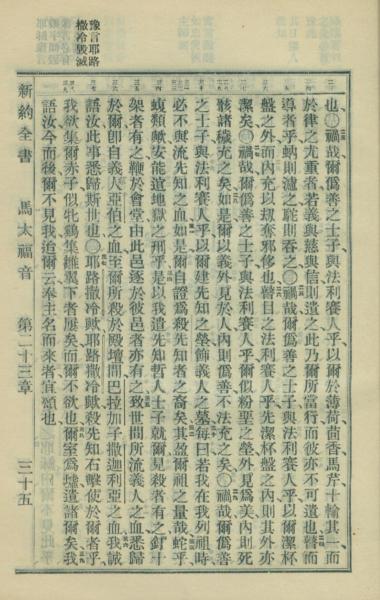 豫言耶路
撒冷毀滅
也〇禍哉爾僞善之士子與法利賽人乎以爾於薄荷茴香馬芹十輸其一而
於律之尤重者若義與慈與信則遺之此乃爾所當行而彼亦不可遺也瞽而
導者乎蚋則濾之駝則吞之〇禍哉爾僞善之士子與法利賽人乎以爾潔杯
盤之外而內充以刧奪邪侈也瞽目之法利賽人乎先潔杯盤之內則其外亦
潔矣〇禍哉爾僞善之士子與法利賽人乎爾似粉堊之塋外見爲美內則死
骸諸穢充之矣如是爾以義外見於人內則僞善不法充之矣〇禍哉爾僞善
之士子與法利賽人乎以爾建先知之塋飾義人之墓每曰若我在我列祖時
必不與流先知之血如是爾自證爲殺先知者之裔矣其盈爾祖之量哉蛇乎
蝮類歟安能逭地獄之刑乎是以我遣先知哲人士子就爾見殺者有之釘十
架者有之鞭於會堂由此邑逐於彼邑者亦有之致世間所流義人之血悉歸
於爾卽自義人亞伯之血至爾所殺於殿壇間巴拉加子撒迦利亞之血我誠
語汝此事悉歸斯世也〇耶路撒冷歟耶路撒冷歟殺先知石擊使於爾者乎
我欲集爾赤子似牝鷄集雛翼下者屢矣而爾不欲也爾室爲墟遺諸爾矣我
語汝今而後爾不見我迨爾云奉主名而來者宜頌也
新約全書 馬太福音 第二十三章 三十五